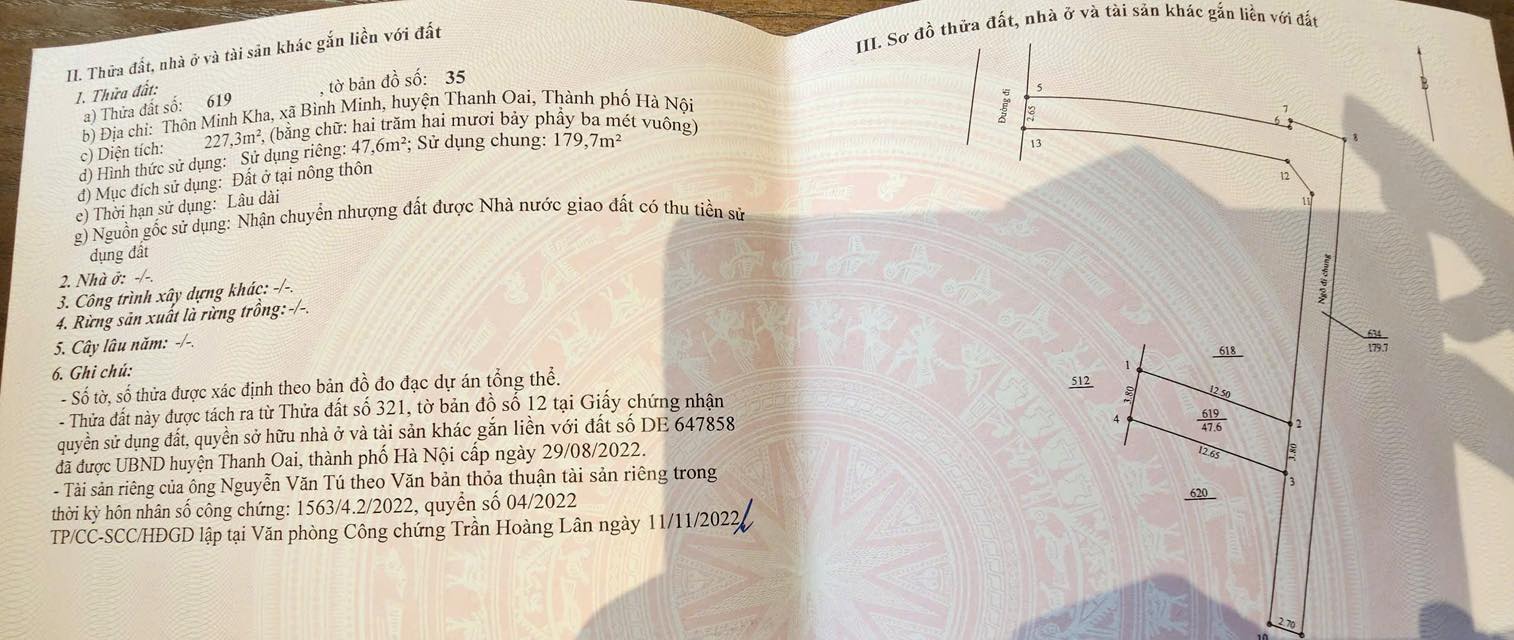 II. Thửa đất, nhà ở và tài sản khác gắn liền với đất
1. Thửa đất:
a) Thửa đất số: 619 , tờ bản đồ số: 35
b) Địa chỉ: Thôn Minh Kha, xã Bình Minh, huyện Thanh Oai, Thành phố Hà Nội
c) Diện tích: 227,3m², (bằng chữ: hai trăm hai mươi bảy phẩy ba mét vuông)
d) Hình thức sử dụng: Sử dụng riêng: 47,6m²; Sử dụng chung: 179,7m²
đ) Mục đích sử dụng: Đất ở tại nông thôn
e) Thời hạn sử dụng: Lâu dài
g) Nguồn gốc sử dụng: Nhận chuyển nhượng đất được Nhà nước giao đất có thu tiền sử
dụng đất
2. Nhà ở: -/-.
3. Công trình xây dựng khác: -/-.
4. Rừng sản xuất là rừng trồng: -/-.
5. Cây lâu năm: -/-.
6. Ghi chú:
- Số tờ, số thửa được xác định theo bản đồ đo đạc dự án tổng thể.
- Thửa đất này được tách ra từ Thửa đất số 321, tờ bản đồ số 12 tại Giấy chứng nhận
quyền sử dụng đất, quyền sở hữu nhà ở và tài sản khác gắn liền với đất số DE 647858
đã được UBND huyện Thanh Oai, thành phố Hà Nội cấp ngày 29/08/2022.
- Tài sản riêng của ông Nguyễn Văn Tú theo Văn bản thỏa thuận tài sản riêng trong
thời kỳ hôn nhân số công chứng: 1563/4.2/2022, quyển số 04/2022
TP/CC-SCC/HĐGD lập tại Văn phòng Công chứng Trần Hoàng Lân ngày 11/11/2022
III. Sơ đồ thửa đất, nhà ở và tài sản khác gắn liền với đất
B
Đường đi
5
2.65
13
7
6
8
12
11
Ngõ đi chung
634
179.7
618
512
1
3.80
4
12.50
619
47.6
12.65
2
3.80
3
620
2.70
10